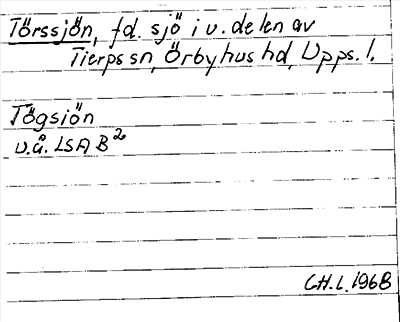 Törssjön, fd. sjö i v. delen av
Tierps sn, Örbyhus hd, Upps. l.
Tögsjön
v.å. LSA B²
CH.L. 1968